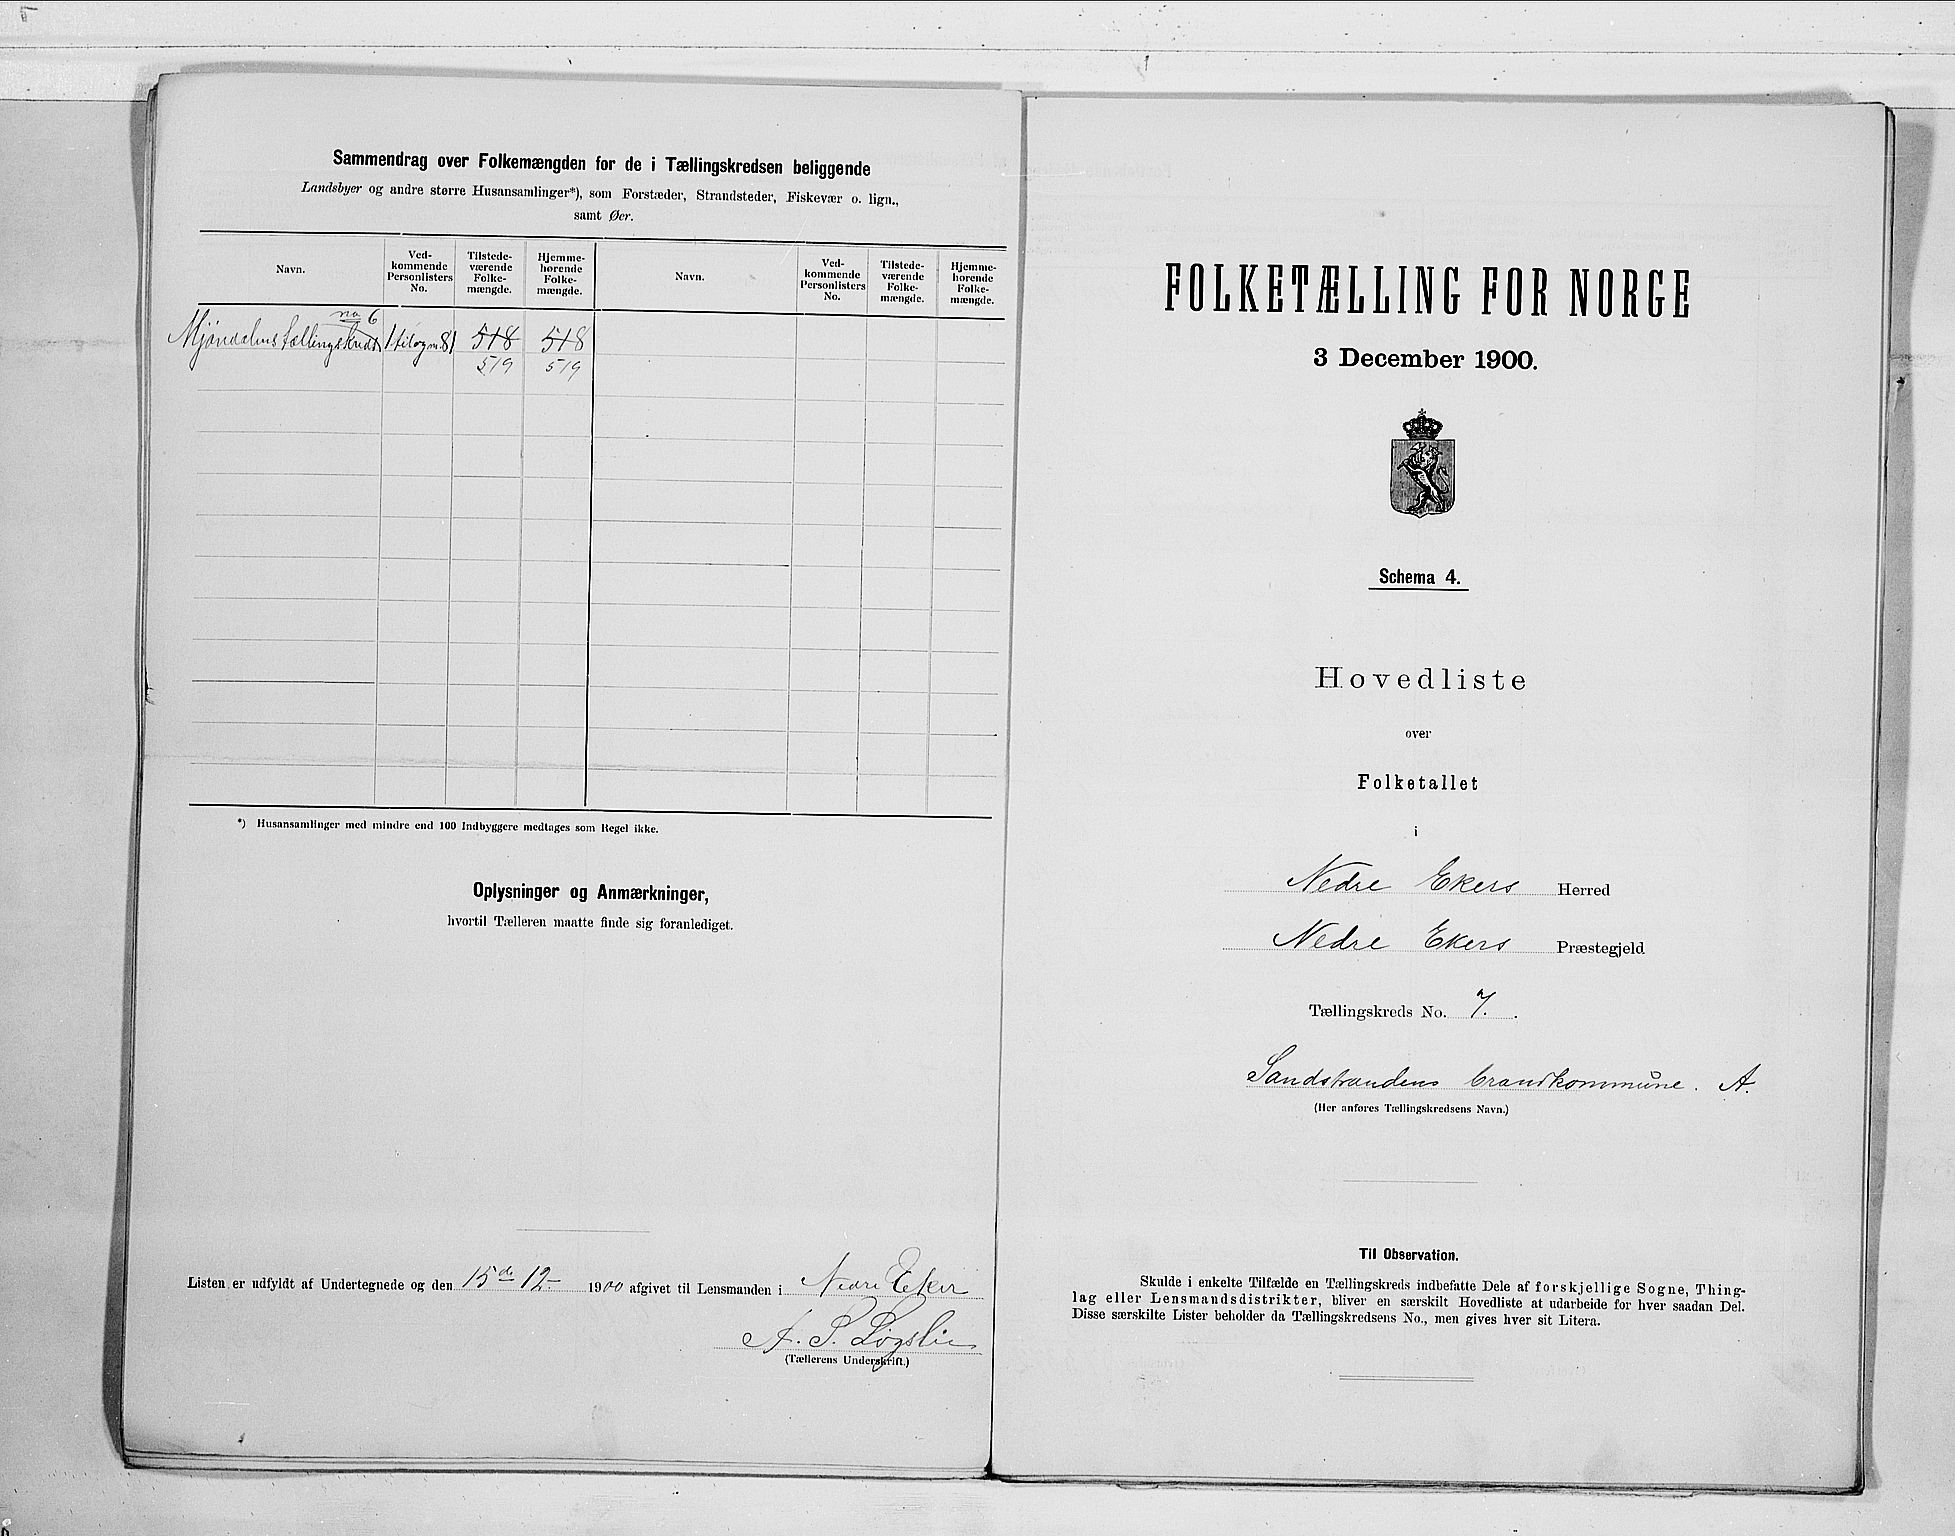 Sammendrag over Folkemængden for de i Tællingskredsen beliggende
Landsbyer og andre større Husansamlinger*), som Forstæder, Strandsteder, Fiskevær o. lign.,
samt Øer.
Navn.
Ved-
kommende
Personlisters
No.
Tilstede-
værende
Folke-
mængde.
Hjemme-
hørende
Folke-
mængde.
Navn.
Ved-
kommende
Personlisters
No.
Tilstede-
værende
Folke-
mængde.
Hjemme-
hørende
Folke-
mængde.
no 6
Mjøndalens tællingskreds 1 til og m. 81 518 518
519 519
*) Husansamlinger med mindre end 100 Indbyggere medtages som Regel ikke.
Oplysninger og Anmærkninger,
hvortil Tælleren maatte finde sig foranlediget.
Listen er udfyldt af Undertegnede og den 15de 12- 1900 afgivet til Lensmanden i Nedre Eker
A. P.
(Tællerens Underskrift.)
FOLKETÆLLING FOR NORGE
3 December 1900.
Schema 4.
Hovedliste
over
Folketallet
i
Nedre Ekers Herred
Nedre Ekers Præstegjeld
Tællingskreds No. 7.
Sandstrandens brandkommune. A.
(Her anføres Tællingskredsens Navn.)
Til Observation.
Skulde i enkelte Tilfælde en Tællingskreds indbefatte Dele af forskjellige Sogne, Thing-
lag eller Lensmandsdistrikter, bliver en særskilt Hovedliste at udarbeide for hver saadan Del.
Disse særskilte Lister beholder da Tællingskredsens No., men gives hver sit Litera.